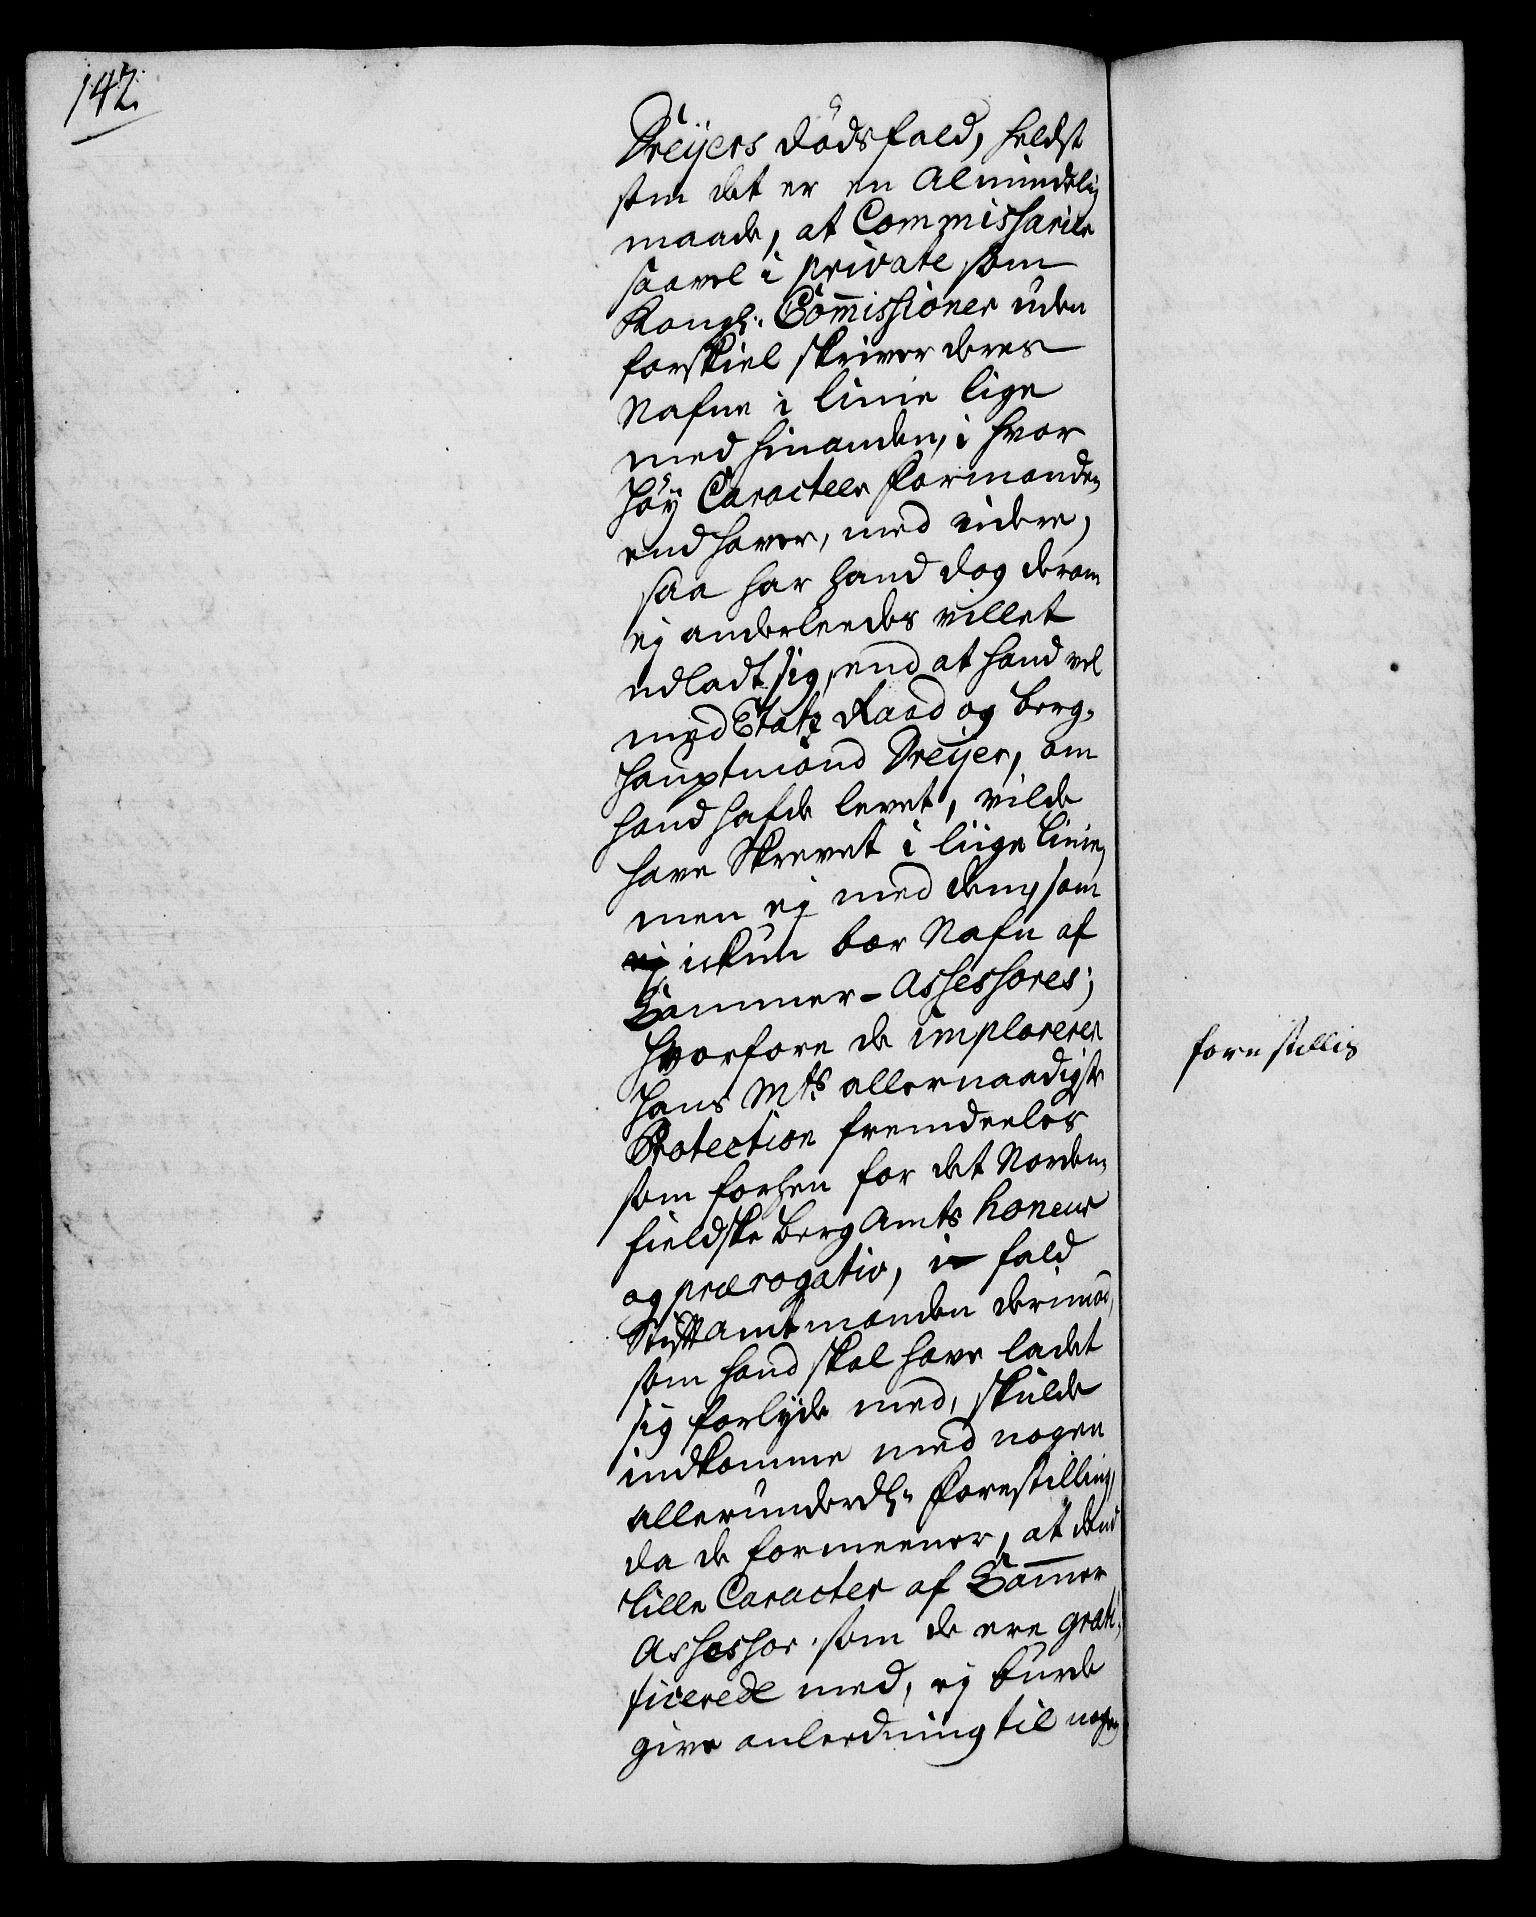 142.
Dreÿers dødsfald, heldst
som det er en Almindelig
maade, at Commissarier
saavel i private som
Kongl: Com̅issioner uden
forskiel skriver deres
Nafne i linie lige
med hinanden, i hvor
høÿ Caracteer Formanden
end haver, med videre,
saa har hand dog derom
ej anderleedes villet
udladt sig, end at hand vel
med Etatz Raad og Berg-
hauptmand Dreÿer, om
hand hafde levet, vilde
have Skrevet i liige linie,
men ej med dem, som
ickun bær Nafn af
Cammer-Assessores;
hvorfore de imploreree
Hans Mts allernaadigste
Protection fremdeeles
som forhen for det Norden-
fieldske BergAmts honeur
og prærogativ, i fald
Stiftamtmanden derimod,
som hand skal have ladet
sig forlÿde med, skulde
indkomme med nogen
allerunderdl: Forestilling,
da de formeener, at dend
lille Caracter af Cam̅er
Assessor som de ere grati-
ficerede med, ej burde
give anleedning til nogen
forestillis